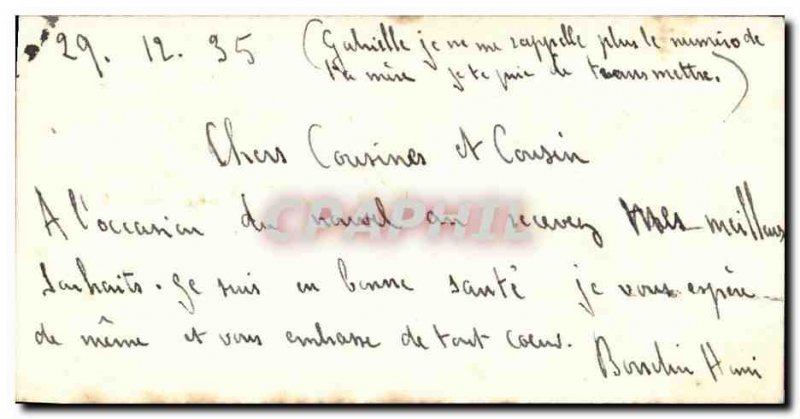 29. 12. 35 (Gabrielle je ne me rappelle plus le numéro de
ta mère je te prie de transmettre.)
Chers Cousines et Cousin
A l'occasion du nouvel an recevez mes meilleurs
souhaits. Je suis en bonne santé je vous espère
de même et vous embrasse de tout coeur.
CPAPHIL